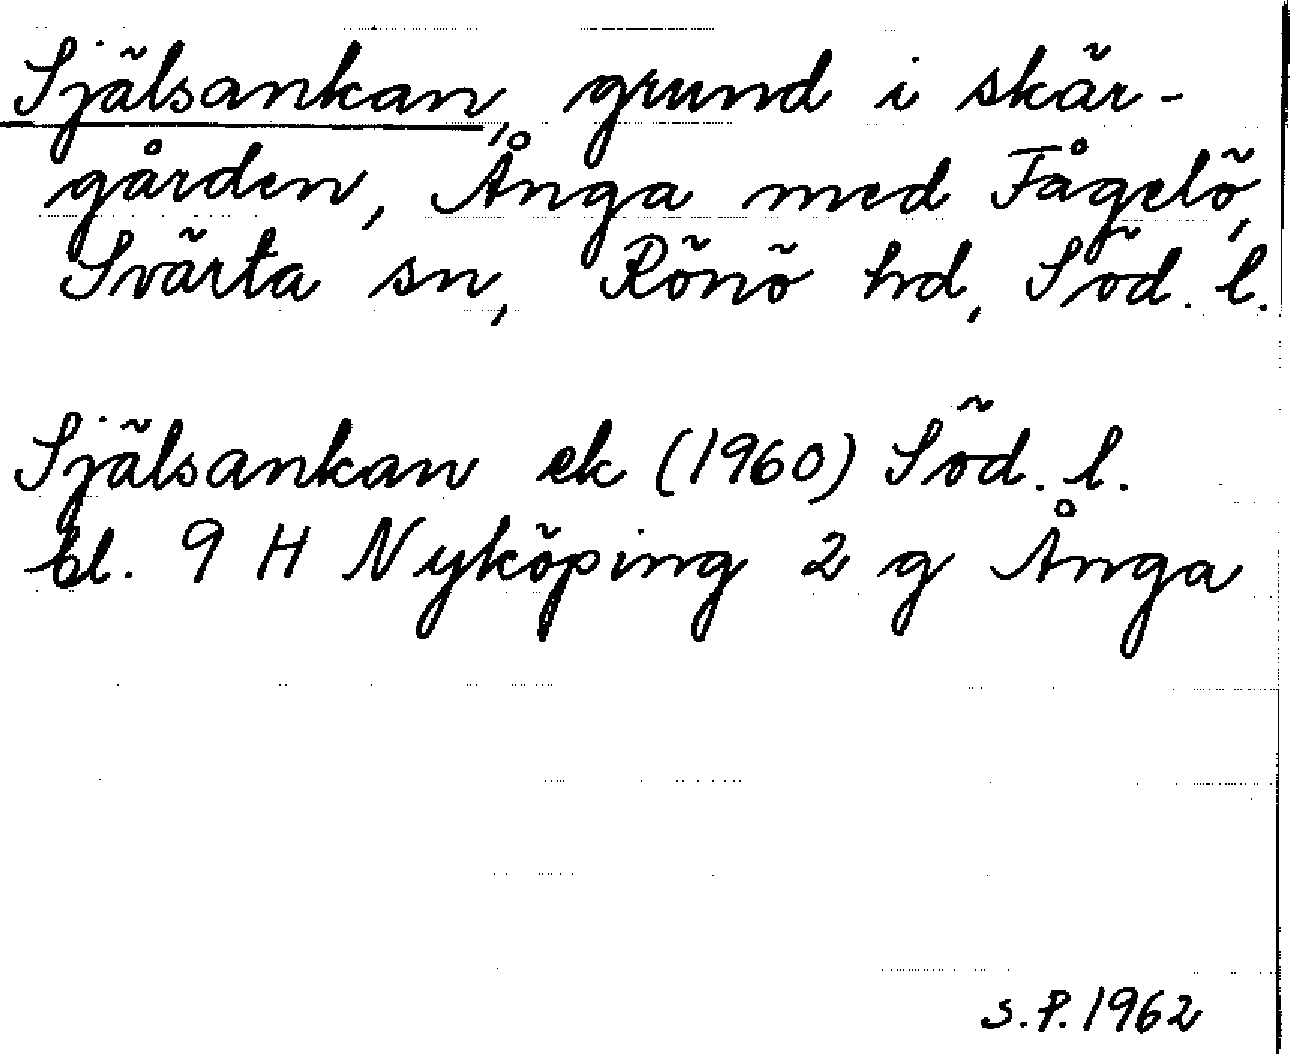 Själsankan, grund i skär-
gården, Ånga med Fågelö,
Svärta sn, Rönö hd, Söd. l.
Själsankan ek (1960) Söd. l.
bl. 9 H Nyköping 2 g Ånga
S.P. 1962